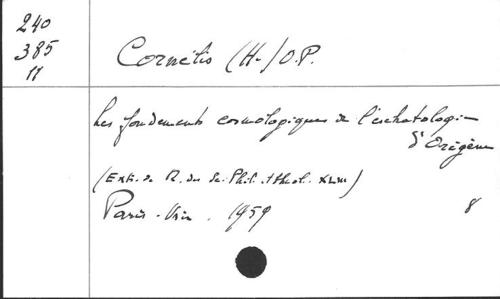 240
385
11
Cornélis (H.) O.P.
Les fondements cosmologiques de l'eschatologie
d'Origène
(Extr. de R. des Sc. Phil. et théol. XLIII)
Paris. Vrin. 1959
8